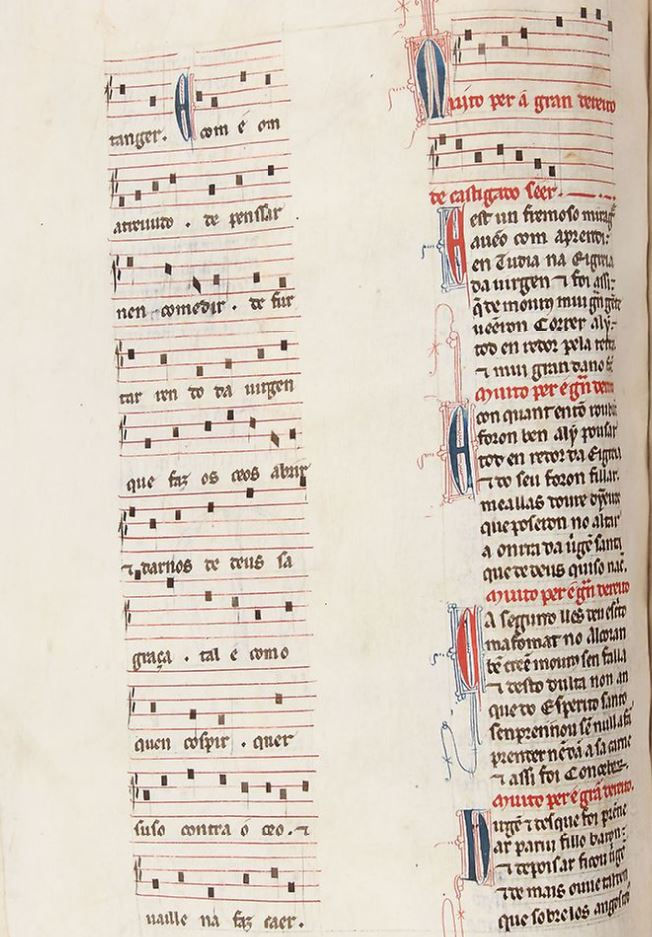 tanger. A com é om
atreuudo . de pensar
nen comedir . de fur
tar ren do da uirgen
que faz os ceos abrir
⁊ darnos de deus sa
graça . tal é como
quen cospir . quer
suso contra o ceo . ⁊
uaille na faz caer.
Muito per á gran dereito
de castigado seer.
E est un fremoso mirag̃
aueo com aprendi:
en Tudia na Eigreia
da uirgen ⁊ foi assi:
q̃ de mourus mui gñ gẽte
ueeron Correr aly:
tod en redor pela terra
⁊ mui gran dano
Muito per é gñ dereito
con quant entõ
foron ben aly pousar
tod en redor da Eigreia
⁊ do seu foron fillar.
meallas doure
que poseron no altar
a onrra da ũgẽ santa
que de deus quiso nac̃.
Muito per é gñ dereito
A segundo lles deu escito
mafomat no Alcoran
bẽ creẽ mourus sen falla
⁊ desto dulta non an
que do Esperito santo
senprennou sẽ null afã
prender nẽ dã a sa carne
⁊ assi foi Conceber.
Muito per é grã dereito.
Uirgẽ ⁊ des que foi prẽne
ar pariu fillo baron:
⁊ depois ar ficou ũgẽ
⁊ de mais ouue tal
que sobrelos